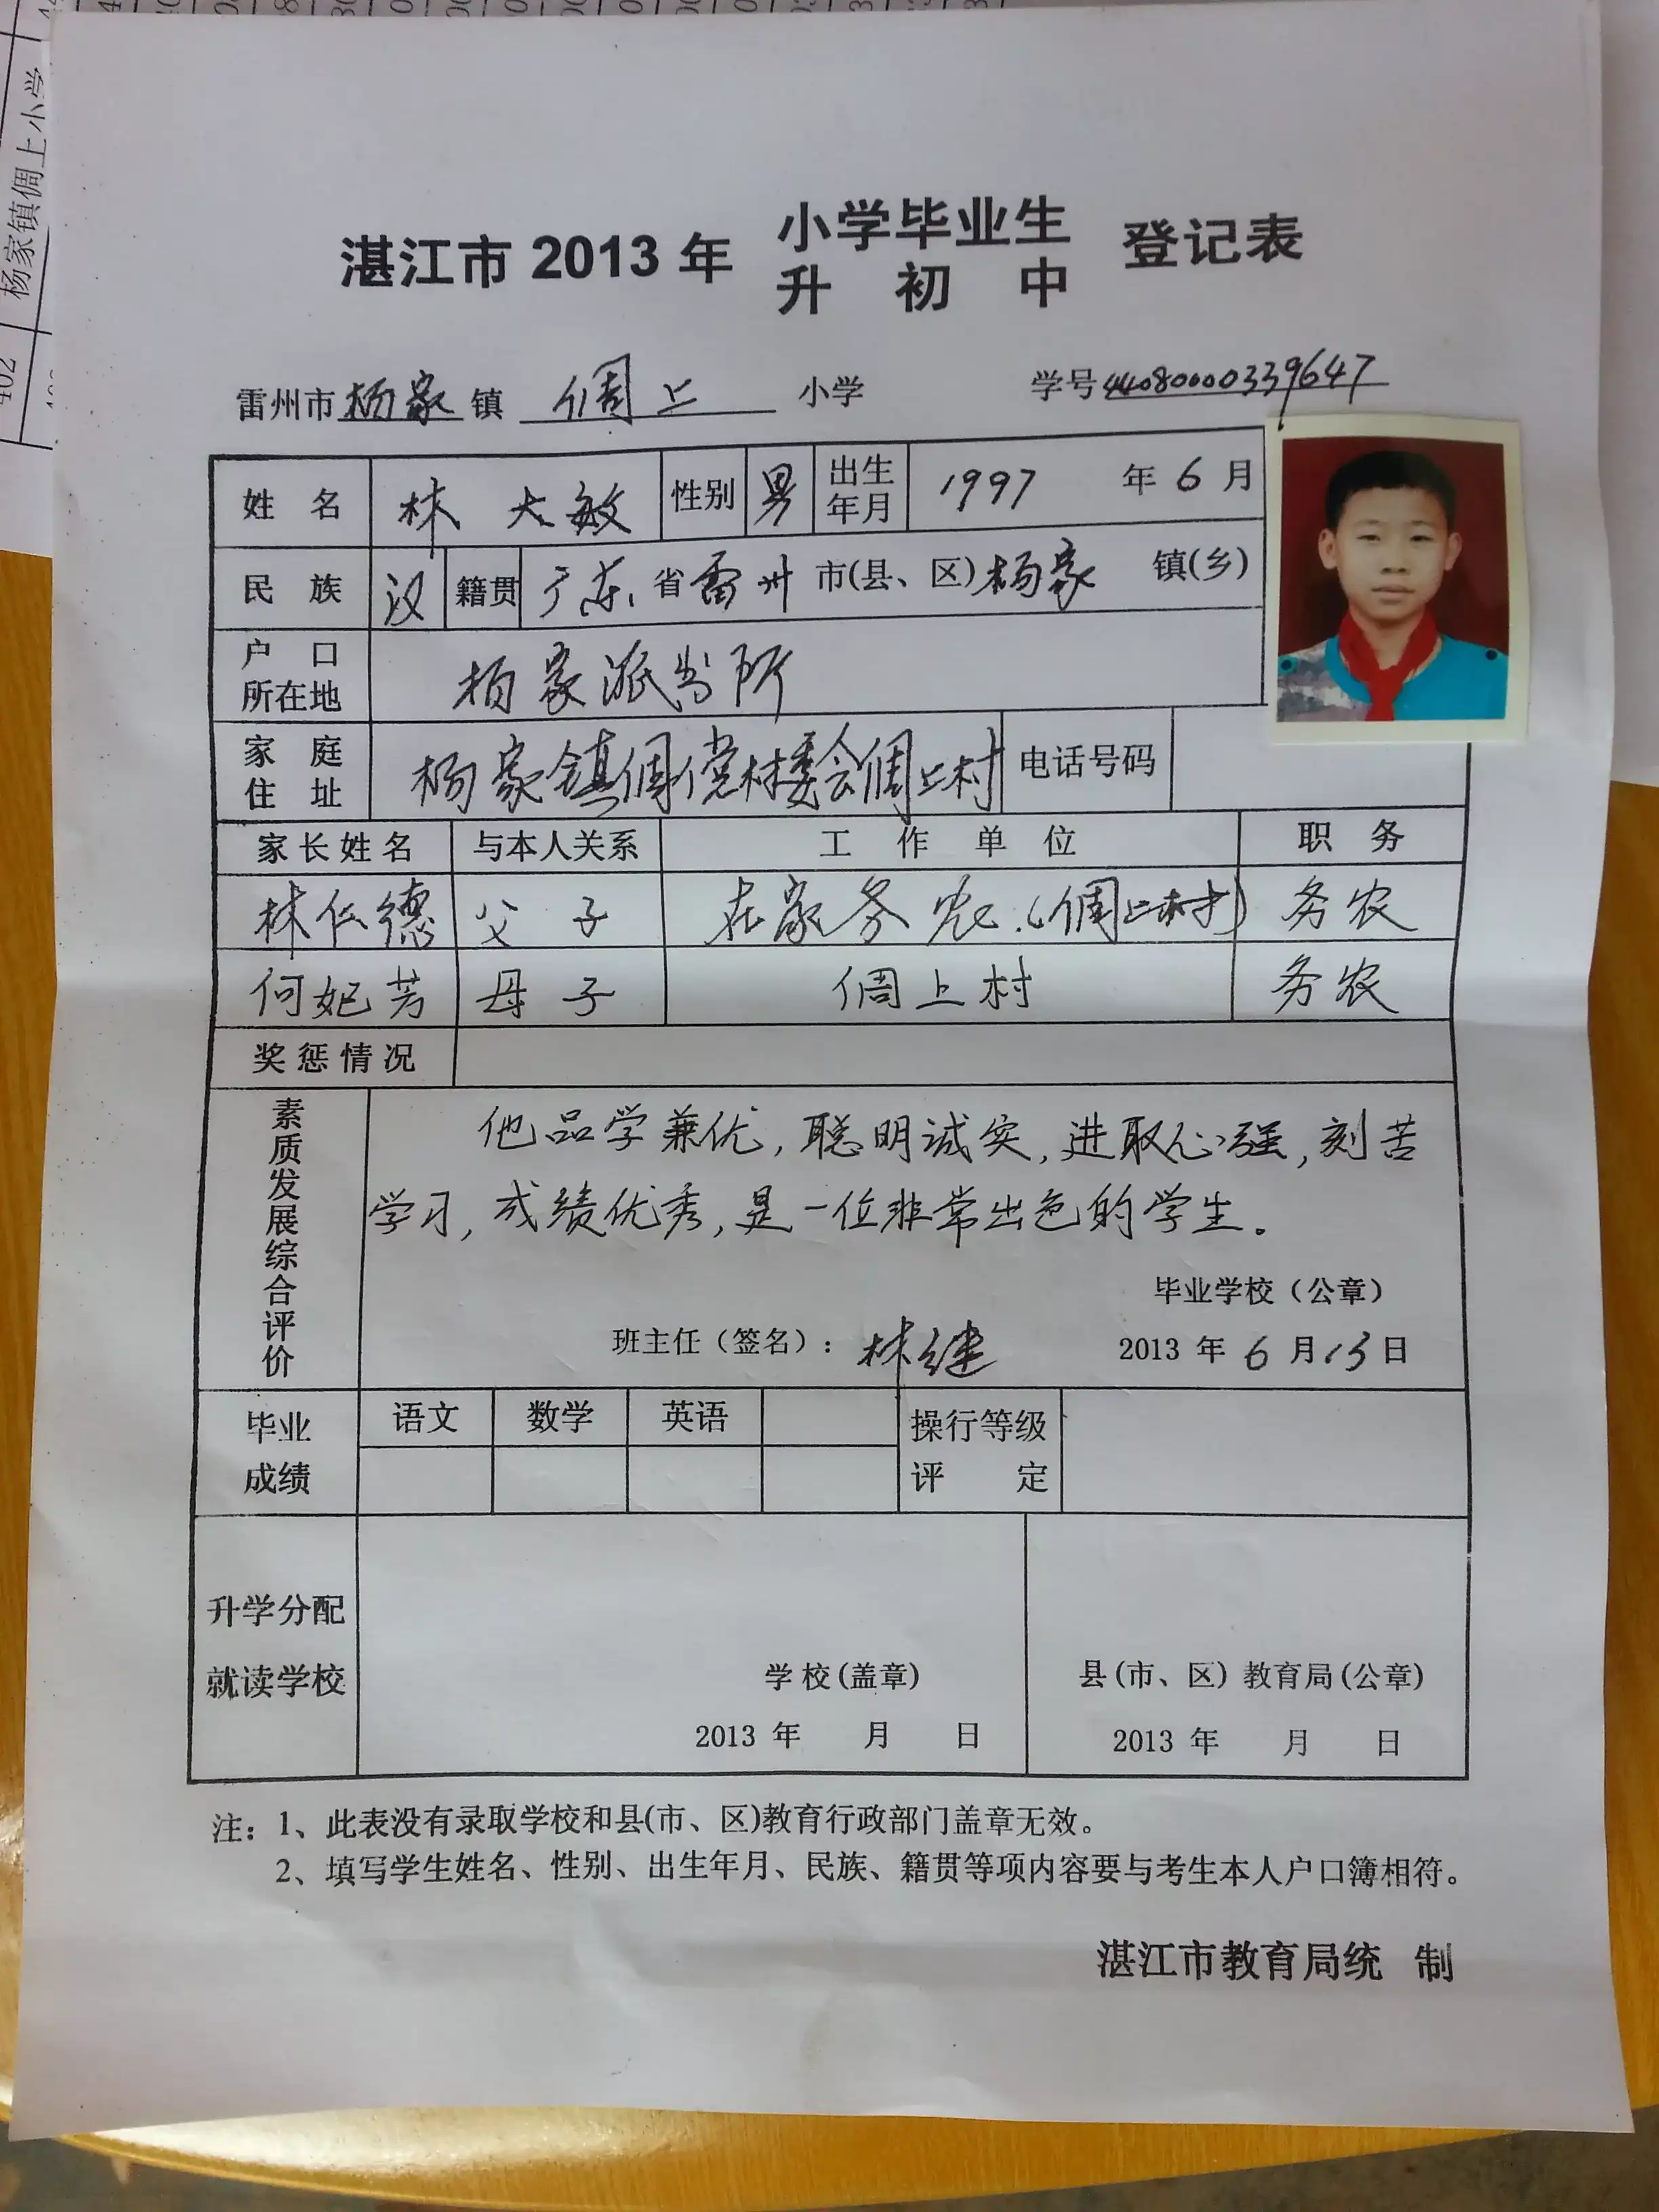 杨家镇倜上小学
402
湛江市 2013 年 小学毕业生 登记表
升 初 中
雷州市 杨家 镇 倜上 小学 学号 4408000339647
姓 名 林大敏 性别 男 出生年月 1997 年 6 月
民 族 汉 籍贯 广东 省 雷州 市(县、区) 杨家 镇(乡)
户 口 所在地 杨家派出所
家 庭 住 址 杨家镇倜傥村委会倜上村 电话号码
家长姓名 与本人关系 工 作 单 位 职 务
林仁德 父 子 在家务农.(倜上村) 务农
何妃芳 母 子 倜上村 务农
奖惩情况
素质发展综合评价
他品学兼优,聪明诚实,进取心强,刻苦
学习,成绩优秀,是一位非常出色的学生。
毕业学校(公章)
班主任(签名): 林继 2013 年 6 月 13 日
毕业 成绩 语文 数学 英语 操行等级 评 定
升学分配
就读学校
学校(盖章) 县(市、区) 教育局(公章)
2013 年 月 日 2013 年 月 日
注: 1、此表没有录取学校和县(市、区)教育行政部门盖章无效。
2、填写学生姓名、性别、出生年月、民族、籍贯等项内容要与考生本人户口簿相符。
湛江市教育局统 制